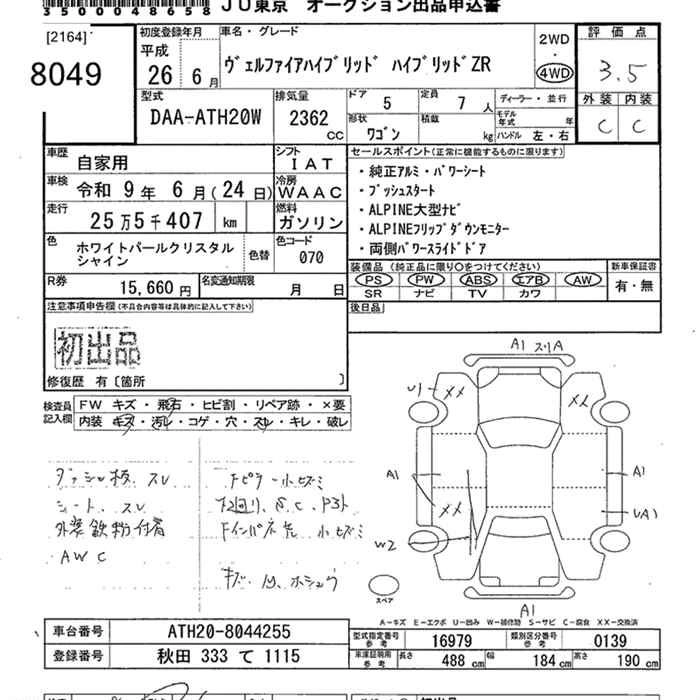 350048658 JU東京 オークション出品申込書
[2164]
8049
初度登録年月
平成
26 6月
車名・グレード
ヴェルファイアハイブリッド ハイブリッドZR
2WD
・
4WD
評価点
3.5
外装 内装
C C
型式
DAA-ATH20W
排気量
2362
CC
ドア 5 定員 7 人
形状 ワゴン 積載 kg
ディーラー・並行
モデル年式 年
ハンドル 左・右
車歴 自家用
シフト IAT
車検 令和 9年 6月(24日)
冷房 WAAC
走行 25万5千407 km
燃料 ガソリン
色 ホワイトパールクリスタルシャイン
色替
色コード 070
R券 15,660円
名変通知期限 月 日
セールスポイント(正常に機能するものに限ります)
・純正アルミ・パワーシート
・プッシュスタート
・ALPINE大型ナビ
・ALPINEフリップダウンモニター
・両側パワースライドドア
装備品(純正品に限り〇をつけてください)
PS PW ABS エアB AW
SR ナビ TV カワ
新車保証書
有・無
後日品
注意事項申告欄(不具合内容等は具体的に記入して下さい)
初出品
修復歴 有〔箇所 〕
検査員記入欄
FW キズ・飛石・ヒビ割・リペア跡・×要
内装 キズ・汚レ・コゲ・穴・スレ・キレ・破レ
ダッシュ板、スレ
シート、スレ
外装鉄粉付着
AWC
A1 スリA
U1 XX
A1
XX
W2
A1
UA1
A1
スペア
A-キズ E-エクボ U-凹み W-補修跡 S-サビ C-腐食 XX-交換済
車台番号 ATH20-8044255
登録番号 秋田 333 て 1115
型式指定番号 参考 16979
類別区分番号 参考 0139
車庫証明用 参考 長さ 488 cm 幅 184 cm 高さ 190 cm